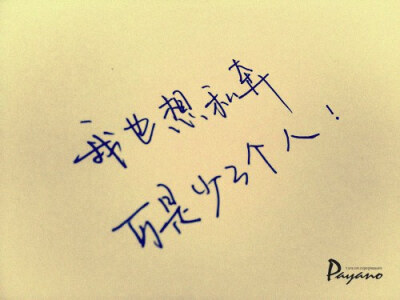 我也想私奔
可是少了个人！
Payano